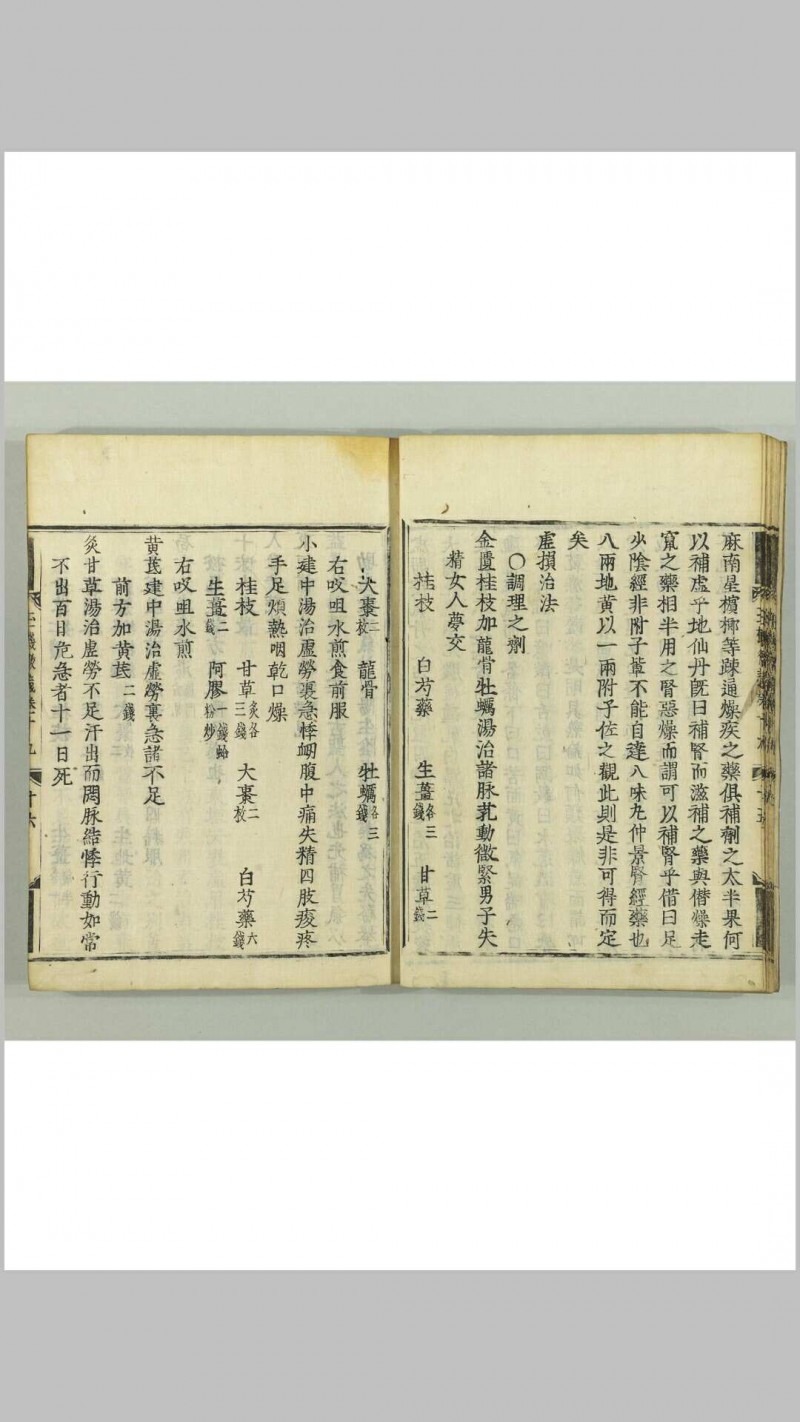 麻南星檳榔等疎通燥疾之藥俱補劑之太半果何
以補虛乎地仙丹既曰補腎而滋補之藥與僭燥走
竄之藥相半用之腎惡燥而謂可以補腎乎借曰足
少陰經非附子軰不能自達八味丸仲景腎經藥也
八兩地黃以一兩附子佐之觀此則是非可得而定
矣
虛損治法
〇調理之劑
金匱桂枝加龍骨牡蠣湯治諸脉芤動微緊男子失
精女人夢交
桂枝 白芍藥 生薑各三錢 甘草二錢
大棗二枚 龍骨 牡蠣各三錢
右㕮咀水煎食前服
小建中湯治虛勞裏急悸衂腹中痛失精四肢痠疼
手足煩熱咽乾口燥
桂枝 甘草炙各三錢 大棗二枚 白芍藥六錢
生薑二錢 阿膠一錢蛤粉炒
右㕮咀水煎
黃芪建中湯治虛勞裏急諸不足
前方加黃芪二錢
炙甘草湯治虛勞不足汗出而悶脉結悸行動如常
不出百日危急者十一日死
十六